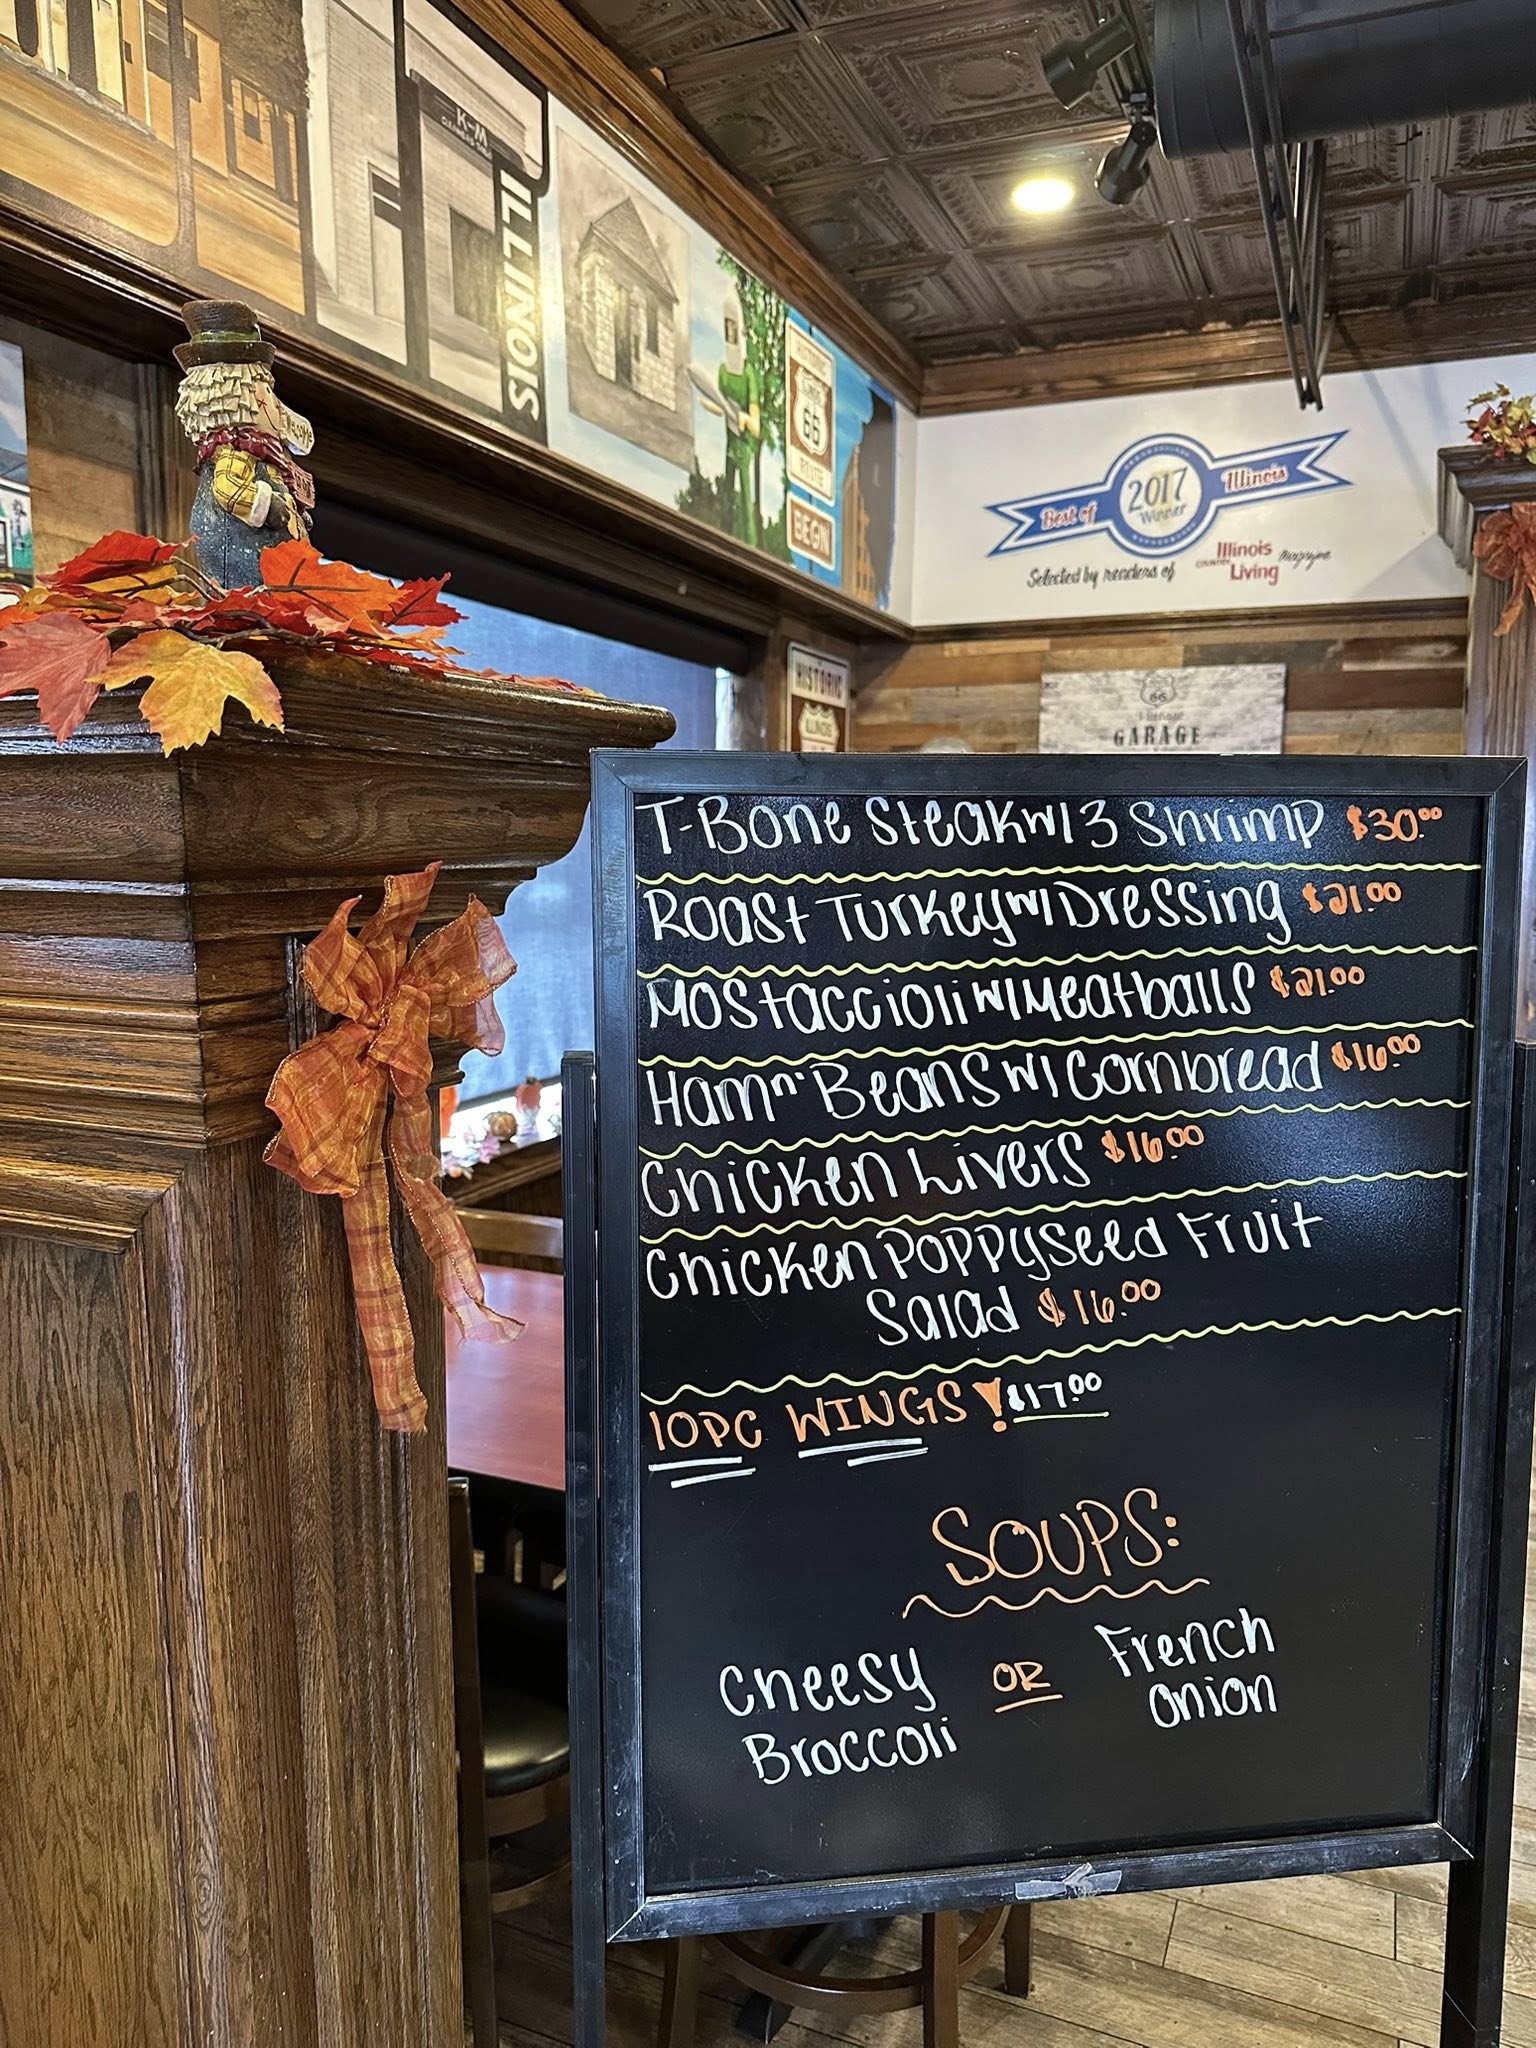 K-M
ILLINOIS
ILLINOIS
66
ROUTE
BEGIN
Best of
2017
Winner
Illinois
Selected by readers of
Illinois
COUNTRY
Living
Magazine
HISTORIC
ILLINOIS
66
GARAGE
T-Bone Steak w/ 3 Shrimp $30.00
Roast Turkey w/ Dressing $21.00
Mostaccioli w/ Meatballs $21.00
Ham n' Beans w/ Cornbread $16.00
Chicken Livers $16.00
Chicken Poppyseed Fruit
Salad $16.00
10PC WINGS! $17.00
SOUPS:
Cheesy
Broccoli
OR
French
Onion